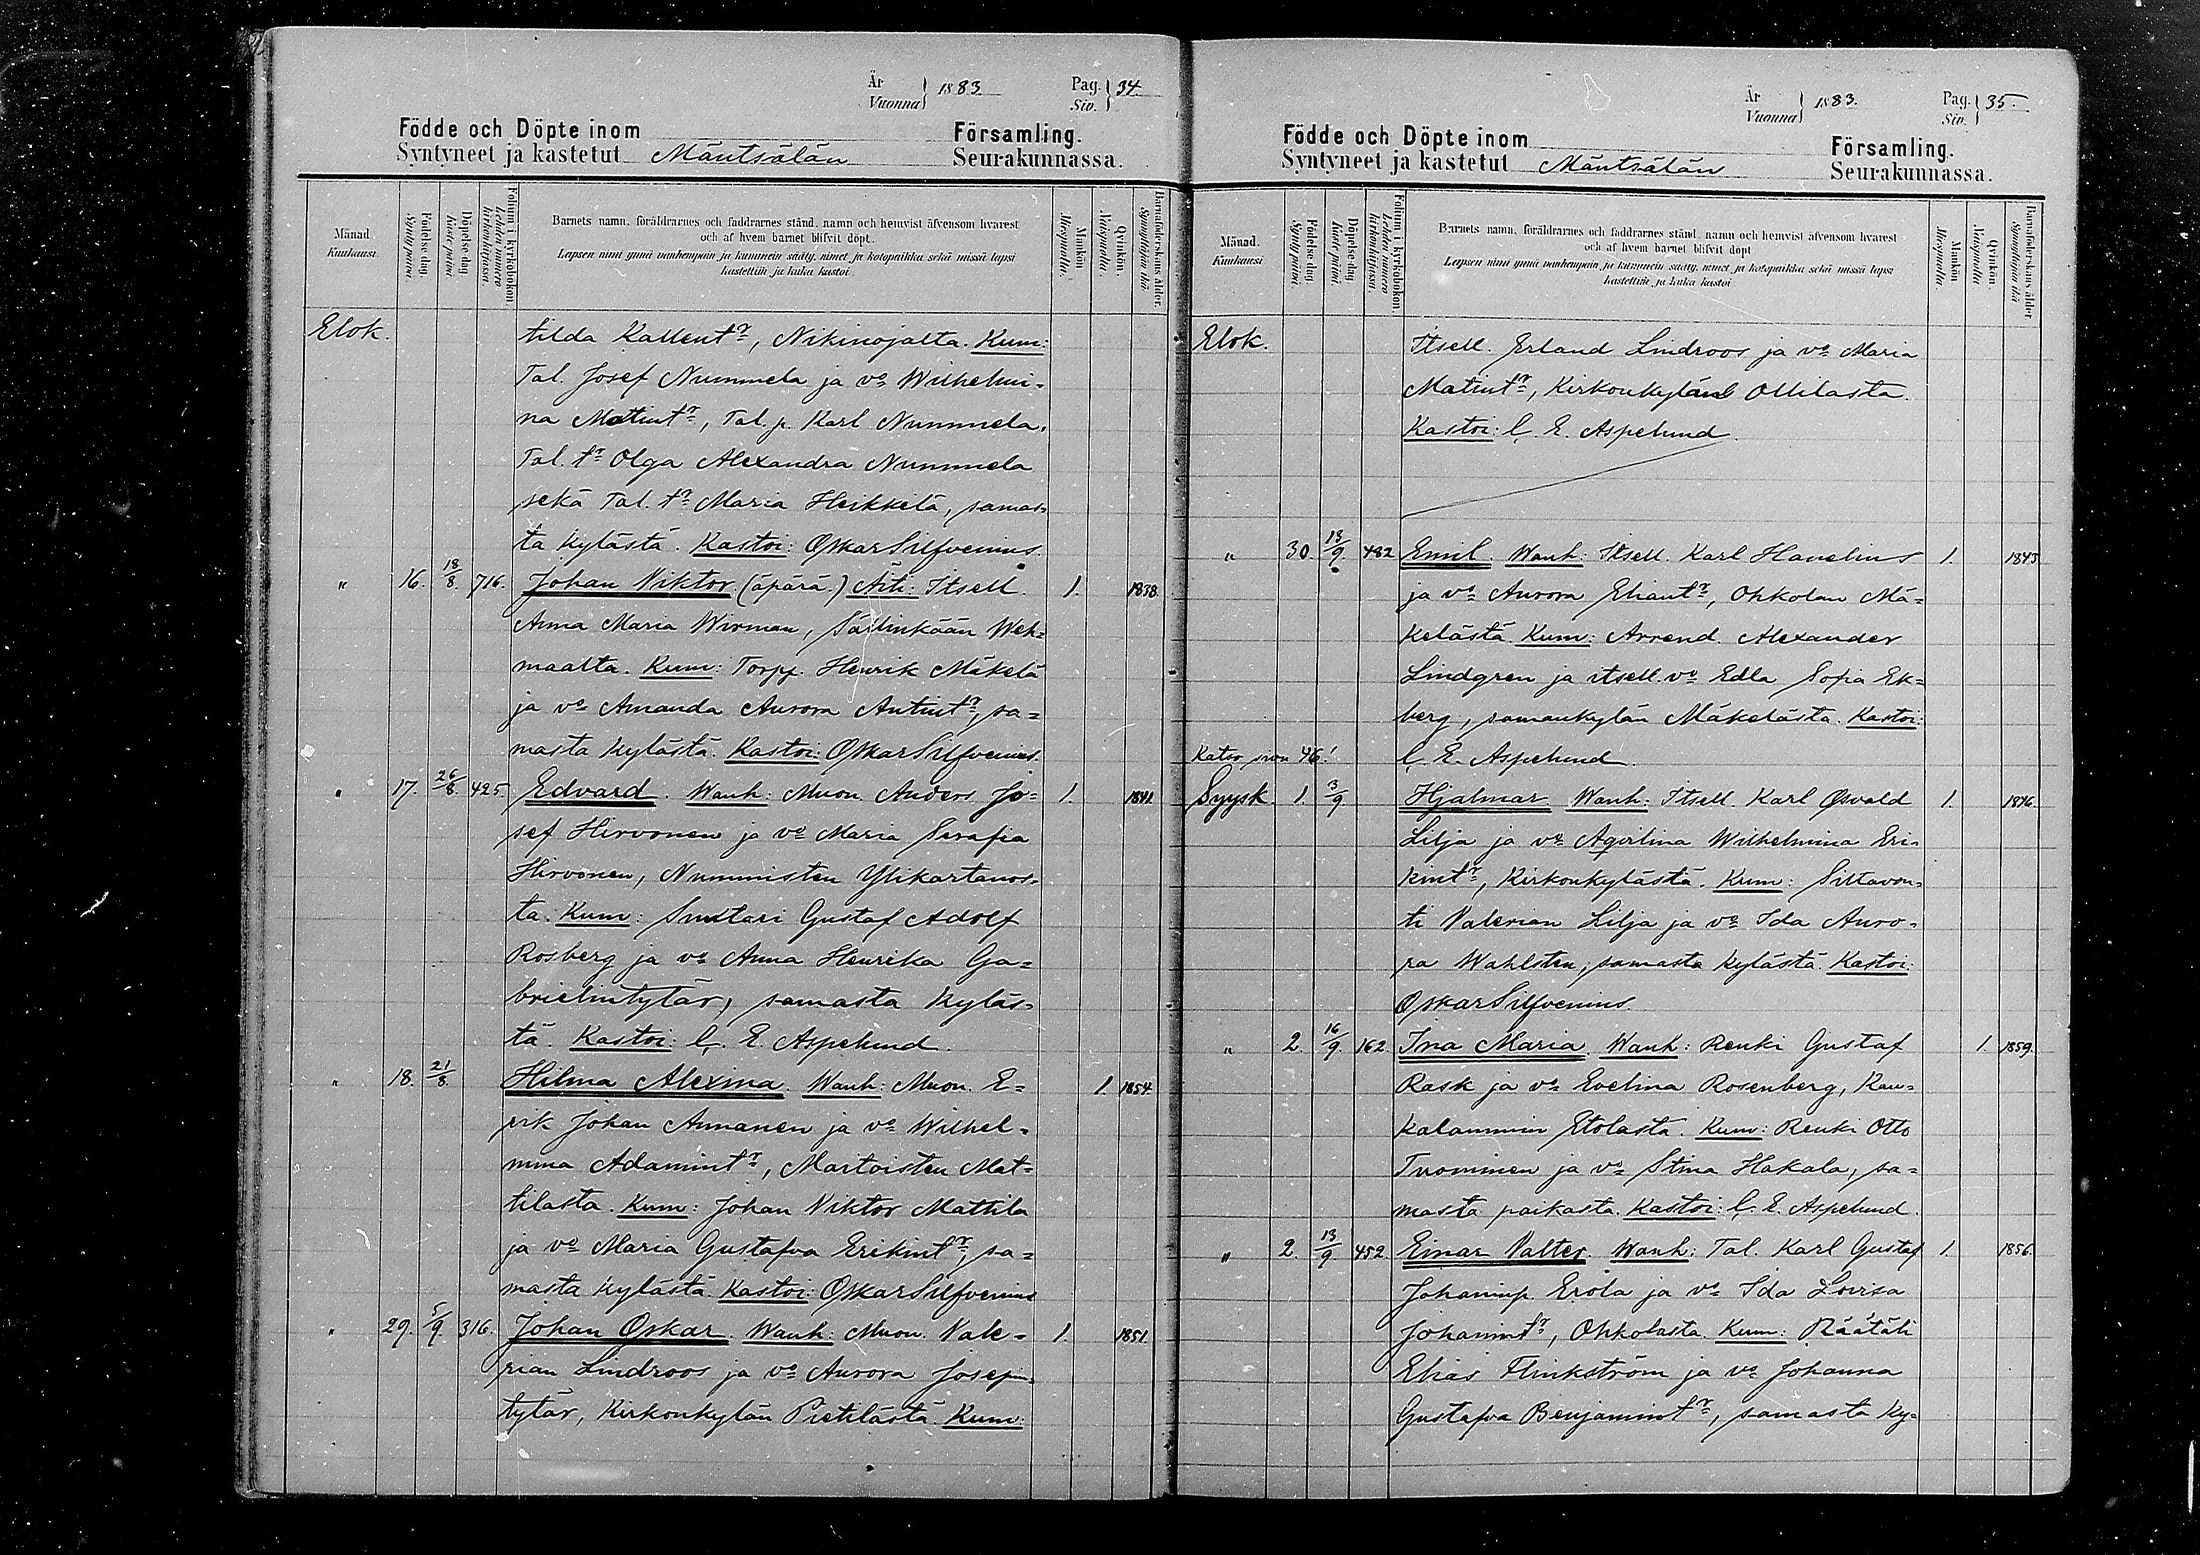 År
Vuonna } 1883.
Pag.
Siv. } 34.
Födde och Döpte inom
Syntyneet ja kastetut Mäntsälän
Församling.
Seurakunnassa.
Månad.
Kuukausi.
Födelse dag.
Syntypäivä.
Döpelse dag.
Kaste päivä.
Folium i kyrkobokon.
Lehden numero
kirkonkirjassa.
Barnets namn, föräldrarnes och faddrarnes stånd, namn och hemvist äfvensom hvarest
och af hvem barnet blifvit döpt.
Lapsen nimi ynnä vanhempain ja kummein sääty, nimet ja kotopaikka sekä missä lapsi
kastettiin ja kuka kastoi.
Mankön.
Miespuolta.
Qvinkön.
Naispuolta.
Barnaföderskans ålder.
Synnyttäjän ikä.
Elok. tilda Kallent:r, Nikinojalta. Kum:
Tal. Josef Nummela ja v:o Wilhelmi-
na Matint:r, Tal. p. Karl Nummela,
Tal. t:r Olga Alexandra Nummela
sekä Tal. t:r Maria Heikkilä, samas-
ta kylästä. Kastoi: Oskar Silfvenius.
" 16. 18/8. 716. Johan Viktor (äpärä.) Äiti: Itsell. 1. 1838.
Anna Maria Wirman, Sälinkään Weh-
maalta. Kum: Torpp. Henrik Mäkelä
ja v:o Amanda Aurora Antint:r, sa-
masta kylästä. Kastoi: Oskar Silfvenius.
" 17. 26/8. 425. Edvard. Wanh: Muon. Anders Jo- 1. 1841.
sef Hirvonen ja v:o Maria Serafia
Hirvonen, Nummisten Ylikartanos-
ta. Kum: Suutari Gustaf Adolf
Rosberg ja v:o Anna Henrika Ga-
brielintytär, samasta kyläs-
tä. Kastoi: C. E. Aspelund.
" 18. 21/8. Hilma Alexina. Wanh: Muon. E- 1. 1854.
rik Johan Annanen ja v:o Wilhel-
mina Adamint:r, Martoisten Mat-
tilasta. Kum: Johan Viktor Mattila
ja v:o Maria Gustafva Erikint:r, sa-
masta kylästä. Kastoi: Oskar Silfvenius
" 29. 5/9. 316. Johan Oskar. Wanh: Muon. Vale- 1. 1851.
rian Lindroos ja v:o Aurora Josefin-
tytär, Kirkonkylän Pietilästä. Kum:
År
Vuonna } 1883.
Pag.
Siv. } 35.
Födde och Döpte inom
Syntyneet ja kastetut Mäntsälän
Församling.
Seurakunnassa.
Månad.
Kuukausi.
Födelse dag.
Syntypäivä.
Döpelse dag.
Kaste päivä.
Folium i kyrkobokon.
Lehden numero
kirkonkirjassa.
Barnets namn, föräldrarnes och faddrarnes stånd, namn och hemvist äfvensom hvarest
och af hvem barnet blifvit döpt.
Lapsen nimi ynnä vanhempain ja kummein sääty, nimet ja kotopaikka sekä missä lapsi
kastettiin ja kuka kastoi.
Mankön.
Miespuolta.
Qvinkön.
Naispuolta.
Barnaföderskans ålder.
Synnyttäjän ikä.
Elok. Itsell. Erland Lindroos ja v:o Maria
Matint:r, Kirkonkylän Ollilasta.
Kastoi: C. E. Aspelund.
" 30. 13/9. 482 Emil. Wanh: Itsell. Karl Havelius 1. 1843
ja v:o Aurora Eliant:r, Ohkolan Mä-
kelästä. Kum: Arrend. Alexander
Lindgren ja itsell. v:o Edla Sofia Ek-
berg, samankylän Mäkelästä. Kastoi:
Katso sivu 46! C. E. Aspelund.
Syysk. 1. 3/9. Hjalmar. Wanh: Itsell. Karl Osvald 1. 1846.
Lilja ja v:o Aqvilina Wilhelmina Eri-
kint:r, Kirkonkylästä. Kum: Siltavou-
ti Valerian Lilja ja v:o Ida Auro-
ra Wahlsten, samasta kylästä. Kastoi:
Oskar Silfvenius.
" 2. 16/9. 162. Ina Maria. Wanh: Renki Gustaf 1. 1859.
Rask ja v:o Evelina Rosenberg, Kau-
kalammin Etolasta. Kum: Renki Otto
Tuominen ja v:o Stina Hakala, sa-
masta paikasta. Kastoi: C. E. Aspelund.
" 2. 13/9. 452. Einar Valter. Wanh: Tal. Karl Gustaf 1. 1856.
Johaninp. Erola ja v:o Ida Lovisa
Johanint:r, Ohkolasta. Kum: Räätäli
Elias Flinkström ja v:o Johanna
Gustafva Benjamint:r, samasta ky-